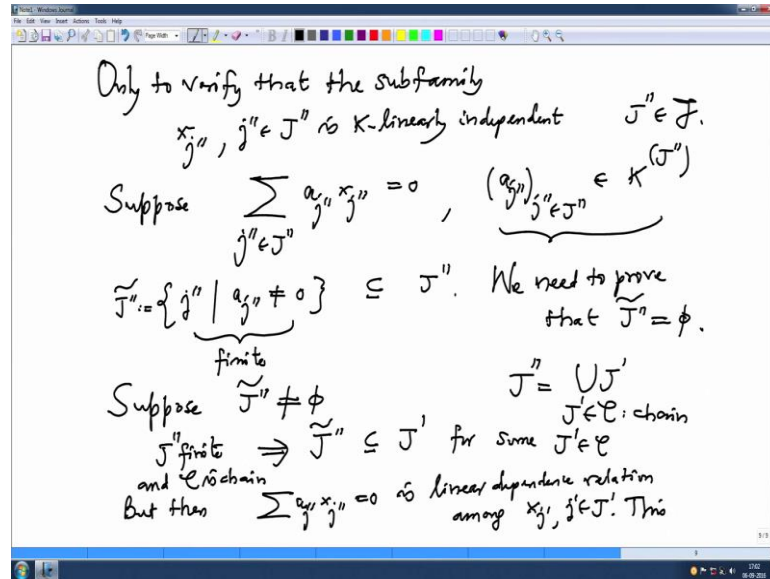 Note1 - Windows Journal
File Edit View Insert Actions Tools Help
Page Width
Only to verify that the subfamily
x_{j''}, j'' ∈ J'' is K-linearly independent J'' ∈ 𝒥.
Suppose ∑_{j''∈J''} a_{j''} x_{j''} = 0 , (a_{j''})_{j''∈J''} ∈ K^{(J'')}
J̃'' := { j'' | a_{j''} ≠ 0 } ⊆ J''. We need to prove
finite that J̃'' = φ.
Suppose J̃'' ≠ φ J'' = ∪ J'
J' ∈ 𝒞 : chain
J'' finite ⇒ J̃'' ⊆ J' for some J' ∈ 𝒞
and 𝒞 is chain
But then ∑ a_{j''} x_{j''} = 0 is linear dependence relation
among x_{j'}, j' ∈ J'. This
9/9
9
17:02
16-09-2018